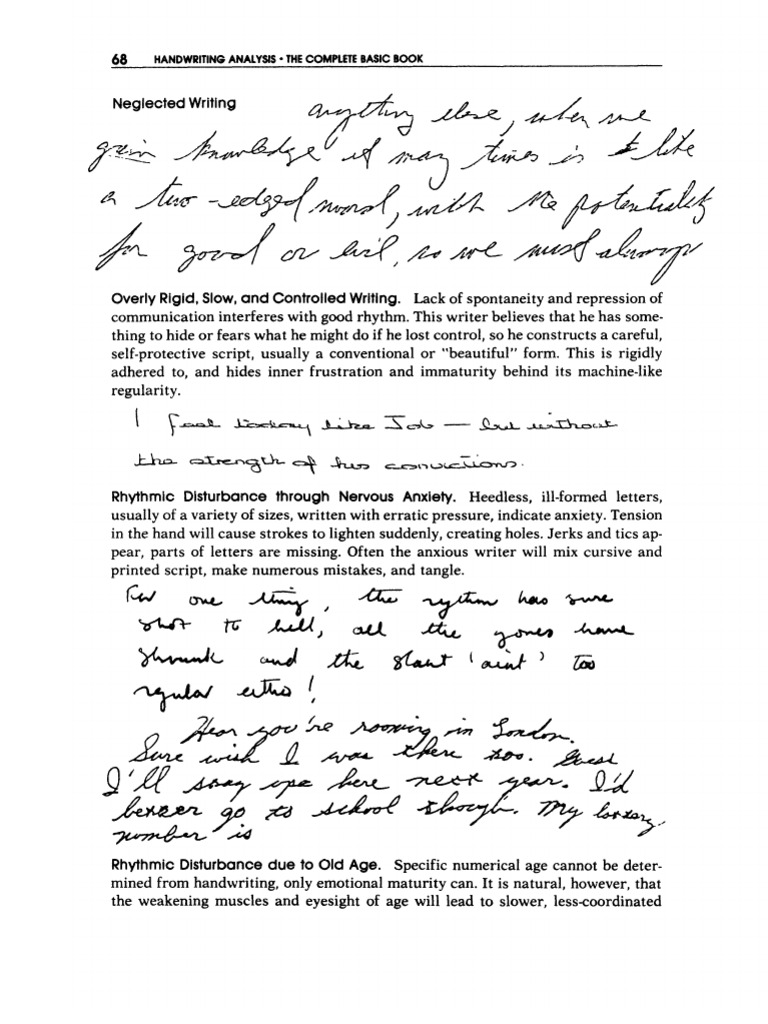 68 HANDWRITING ANALYSIS • THE COMPLETE BASIC BOOK
Neglected Writing
anything else, when we
gain knowledge it may times is like
a two-edged sword, with the potentiality
for good or evil, so we must always
Overly Rigid, Slow, and Controlled Writing. Lack of spontaneity and repression of
communication interferes with good rhythm. This writer believes that he has some-
thing to hide or fears what he might do if he lost control, so he constructs a careful,
self-protective script, usually a conventional or "beautiful" form. This is rigidly
adhered to, and hides inner frustration and immaturity behind its machine-like
regularity.
I feel today like Job — but without
the strength of his convictions.
Rhythmic Disturbance through Nervous Anxiety. Heedless, ill-formed letters,
usually of a variety of sizes, written with erratic pressure, indicate anxiety. Tension
in the hand will cause strokes to lighten suddenly, creating holes. Jerks and tics ap-
pear, parts of letters are missing. Often the anxious writer will mix cursive and
printed script, make numerous mistakes, and tangle.
For one thing, the rythm has sure
shot to hell, all the zones have
shrunk and the slant 'aint' too
regular either!
Hear you're rooming in London.
Sure wish I was there too. Guess
I'll stay ope here next year. I'd
better go to school though. My lottery
number is
Rhythmic Disturbance due to Old Age. Specific numerical age cannot be deter-
mined from handwriting, only emotional maturity can. It is natural, however, that
the weakening muscles and eyesight of age will lead to slower, less-coordinated